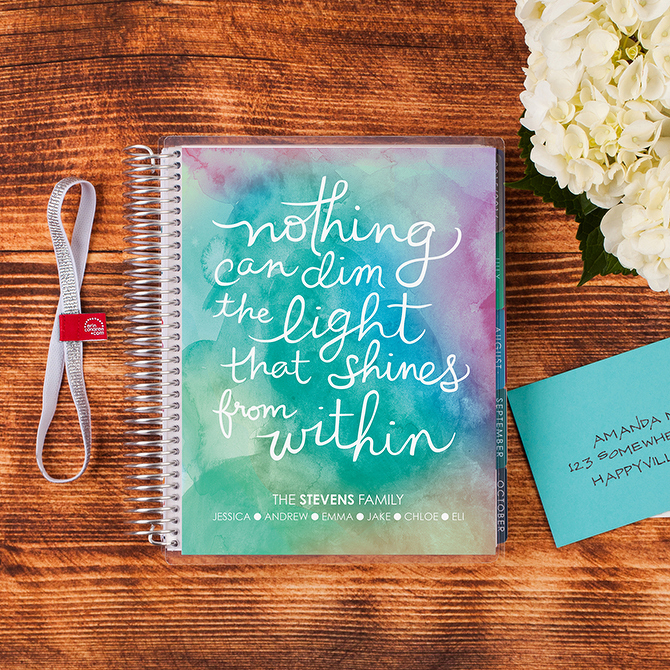 nothing
can dim
the light
that shines
from within
THE STEVENS FAMILY
JESSICA ● ANDREW ● EMMA ● JAKE ● CHLOE ● ELI
erin
condren
.com
JULY
AUGUST
SEPTEMBER
OCTOBER
AMANDA
123 SOMEWHE
HAPPYVILL